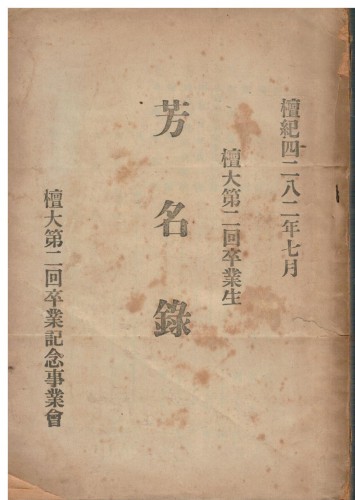 檀紀四二八二年七月
檀大第二回卒業生
芳名錄
檀大第二回卒業記念事業會